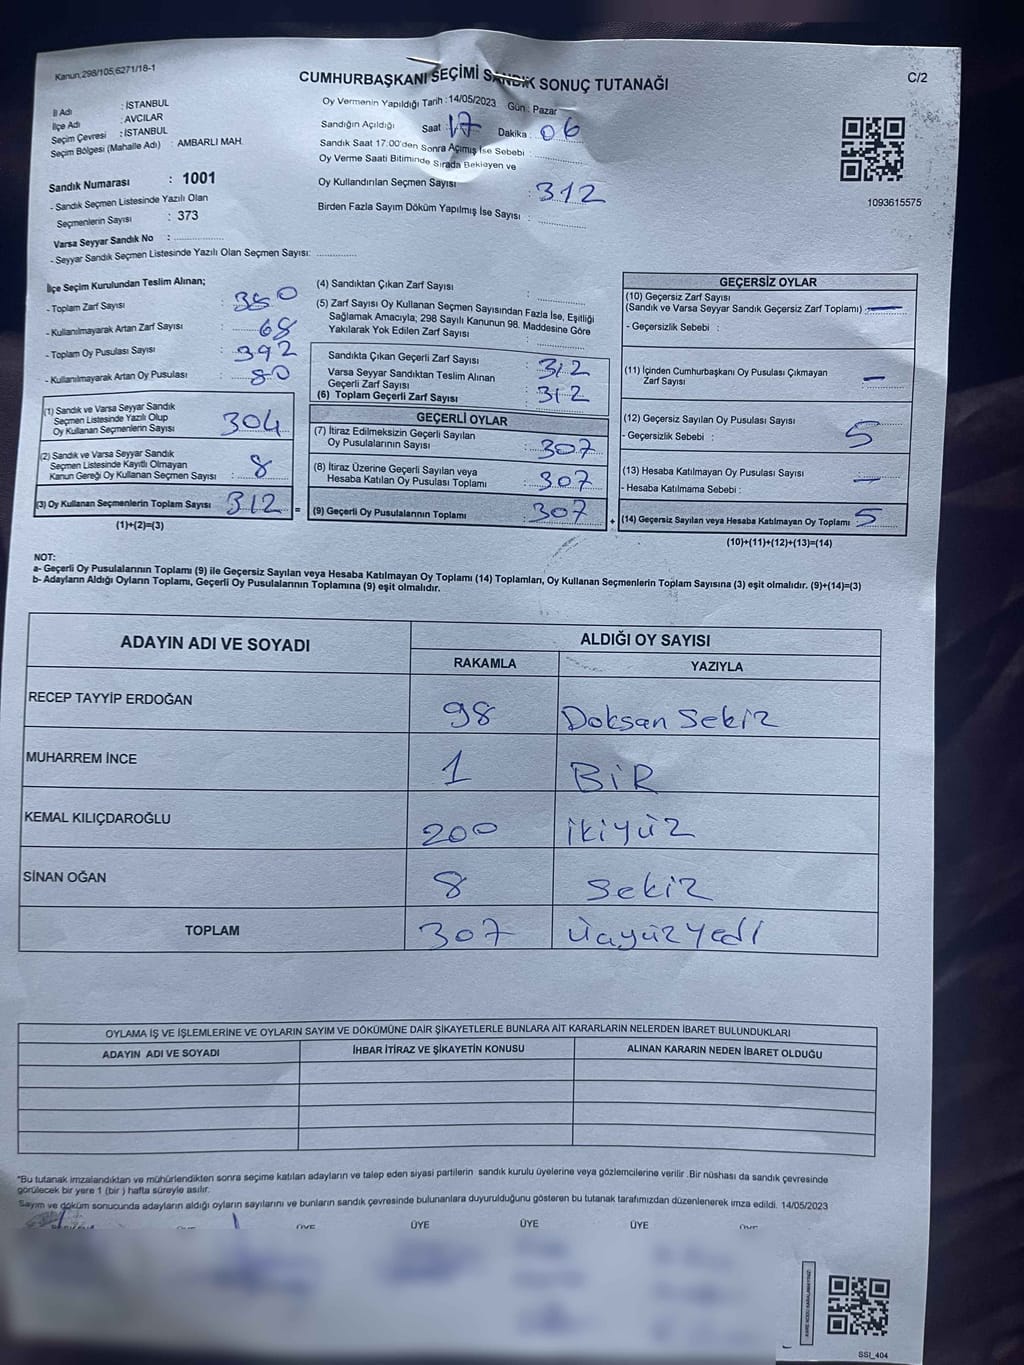 Kanun,298/105,6271/18-1
CUMHURBAŞKANI SEÇİMİ SANDIK SONUÇ TUTANAĞI
C/2
İl Adı : İSTANBUL
İlçe Adı : AVCILAR
Seçim Çevresi : İSTANBUL
Seçim Bölgesi (Mahalle Adı) : AMBARLI MAH.
Sandık Numarası : 1001
- Sandık Seçmen Listesinde Yazılı Olan
Seçmenlerin Sayısı : 373
Varsa Seyyar Sandık No :
- Seyyar Sandık Seçmen Listesinde Yazılı Olan Seçmen Sayısı:
Oy Vermenin Yapıldığı Tarih :14/05/2023 Gün : Pazar
Sandığın Açıldığı Saat : 17 Dakika : 06
Sandık Saat 17:00'den Sonra Açımış İse Sebebi :
Oy Verme Saati Bitiminde Sırada Bekleyen ve
Oy Kullandırılan Seçmen Sayısı : 312
Birden Fazla Sayım Döküm Yapılmış İse Sayısı :
1093615575
İlçe Seçim Kurulundan Teslim Alınan;
- Toplam Zarf Sayısı : 380
- Kullanılmayarak Artan Zarf Sayısı : 68
- Toplam Oy Pusulası Sayısı : 392
- Kullanılmayarak Artan Oy Pusulası : 80
(1) Sandık ve Varsa Seyyar Sandık
Seçmen Listesinde Yazılı Olup
Oy Kullanan Seçmenlerin Sayısı : 304
(2) Sandık ve Varsa Seyyar Sandık
Seçmen Listesinde Kayıtlı Olmayan
Kanun Gereği Oy Kullanan Seçmen Sayısı : 8
(3) Oy Kullanan Seçmenlerin Toplam Sayısı : 312 =
(1)+(2)=(3)
(4) Sandıktan Çıkan Zarf Sayısı :
(5) Zarf Sayısı Oy Kullanan Seçmen Sayısından Fazla İse, Eşitliği
Sağlamak Amacıyla; 298 Sayılı Kanunun 98. Maddesine Göre
Yakılarak Yok Edilen Zarf Sayısı :
Sandıkta Çıkan Geçerli Zarf Sayısı : 312
Varsa Seyyar Sandıktan Teslim Alınan
Geçerli Zarf Sayısı :
(6) Toplam Geçerli Zarf Sayısı : 312
GEÇERLİ OYLAR
(7) İtiraz Edilmeksizin Geçerli Sayılan
Oy Pusulalarının Sayısı : 307
(8) İtiraz Üzerine Geçerli Sayılan veya
Hesaba Katılan Oy Pusulası Toplamı : 307
(9) Geçerli Oy Pusulalarının Toplamı : 307 +
GEÇERSİZ OYLAR
(10) Geçersiz Zarf Sayısı
(Sandık ve Varsa Seyyar Sandık Geçersiz Zarf Toplamı) : —
- Geçersizlik Sebebi :
(11) İçinden Cumhurbaşkanı Oy Pusulası Çıkmayan
Zarf Sayısı : —
(12) Geçersiz Sayılan Oy Pusulası Sayısı : 5
- Geçersizlik Sebebi :
(13) Hesaba Katılmayan Oy Pusulası Sayısı : —
- Hesaba Katılmama Sebebi :
(14) Geçersiz Sayılan veya Hesaba Katılmayan Oy Toplamı : 5
(10)+(11)+(12)+(13)=(14)
NOT:
a- Geçerli Oy Pusulalarının Toplamı (9) ile Geçersiz Sayılan veya Hesaba Katılmayan Oy Toplamı (14) Toplamları, Oy Kullanan Seçmenlerin Toplam Sayısına (3) eşit olmalıdır. (9)+(14)=(3)
b- Adayların Aldığı Oyların Toplamı, Geçerli Oy Pusulalarının Toplamına (9) eşit olmalıdır.
ADAYIN ADI VE SOYADI ALDIĞI OY SAYISI
RAKAMLA YAZIYLA
RECEP TAYYİP ERDOĞAN 98 Doksan Sekiz
MUHARREM İNCE 1 BİR
KEMAL KILIÇDAROĞLU 200 ikiyüz
SİNAN OĞAN 8 Sekiz
TOPLAM 307 Üçyüz Yedi
OYLAMA İŞ VE İŞLEMLERİNE VE OYLARIN SAYIM VE DÖKÜMÜNE DAİR ŞİKAYETLERLE BUNLARA AİT KARARLARIN NELERDEN İBARET BULUNDUKLARI
ADAYIN ADI VE SOYADI İHBAR İTİRAZ VE ŞİKAYETİN KONUSU ALINAN KARARIN NEDEN İBARET OLDUĞU
*Bu tutanak imzalandıktan ve mühürlendikten sonra seçime katılan adayların ve talep eden siyasi partilerin sandık kurulu üyelerine veya gözlemcilerine verilir .Bir nüshası da sandık çevresinde
görülecek bir yere 1 (bir ) hafta süreyle asılır.
Sayım ve döküm sonucunda adayların aldığı oyların sayılarını ve bunların sandık çevresinde bulunanlara duyurulduğunu gösteren bu tutanak tarafımızdan düzenlenerek imza edildi. 14/05/2023
ÜYE ÜYE ÜYE ÜYE ÜYE
SSI_404